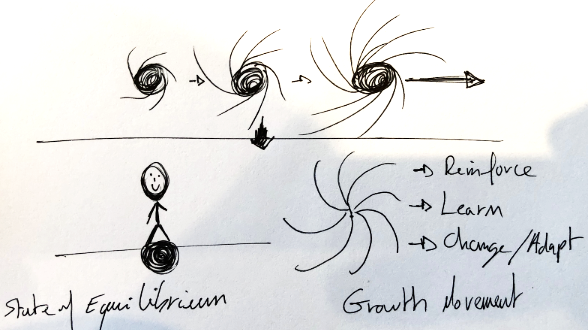 Reinforce
Learn
Change/Adapt
State of Equilibrium
Growth Movement